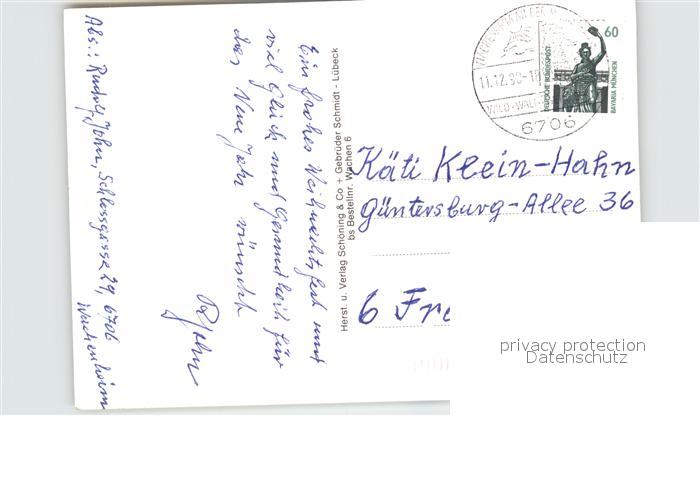 Abs.: Rudolf John, Schlossgasse 29, 6706
Wachenheim
Ein frohes Weihnachtsfest und
viel Glück und Gesundheit für
das Neue Jahr wünscht
R. John
Herst. u. Verlag Schöning & Co + Gebrüder Schmidt - Lübeck
bs Bestellnr. Wachen 6
11.12.90-18
WALD
6706
60
DEUTSCHE BUNDESPOST
BAVARIA MÜNCHEN
Käti Klein-Hahn
Güntersburg-Allee 36
6 Fr
privacy protection
Datenschutz